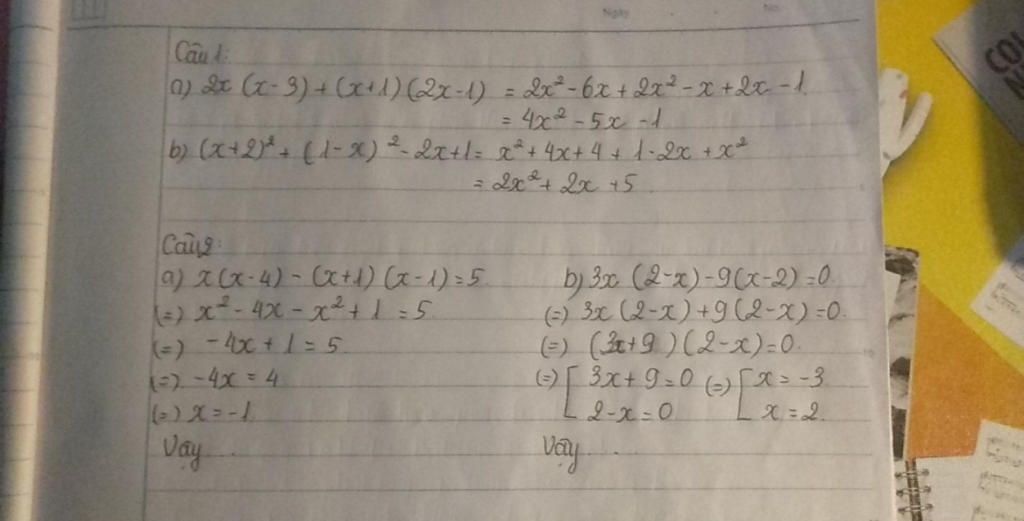 Ngày No.
Câu 1:
a) 2x (x-3) + (x+1) (2x-1) = 2x² - 6x + 2x² - x + 2x - 1
= 4x² - 5x - 1
b) (x+2)² + (1-x)² - 2x+1 = x² + 4x + 4 + 1 - 2x + x²
= 2x² + 2x + 5
Câu 2:
a) x(x-4) - (x+1) (x-1) = 5
(=) x² - 4x - x² + 1 = 5
(=) -4x + 1 = 5
(=) -4x = 4
(=) x = -1
Vậy ...
b) 3x (2-x) - 9(x-2) = 0
(=) 3x (2-x) + 9 (2-x) = 0
(=) (3x+9) (2-x) = 0
(=) [ 3x + 9 = 0 (=) [ x = -3
2-x = 0 x = 2
Vậy ...